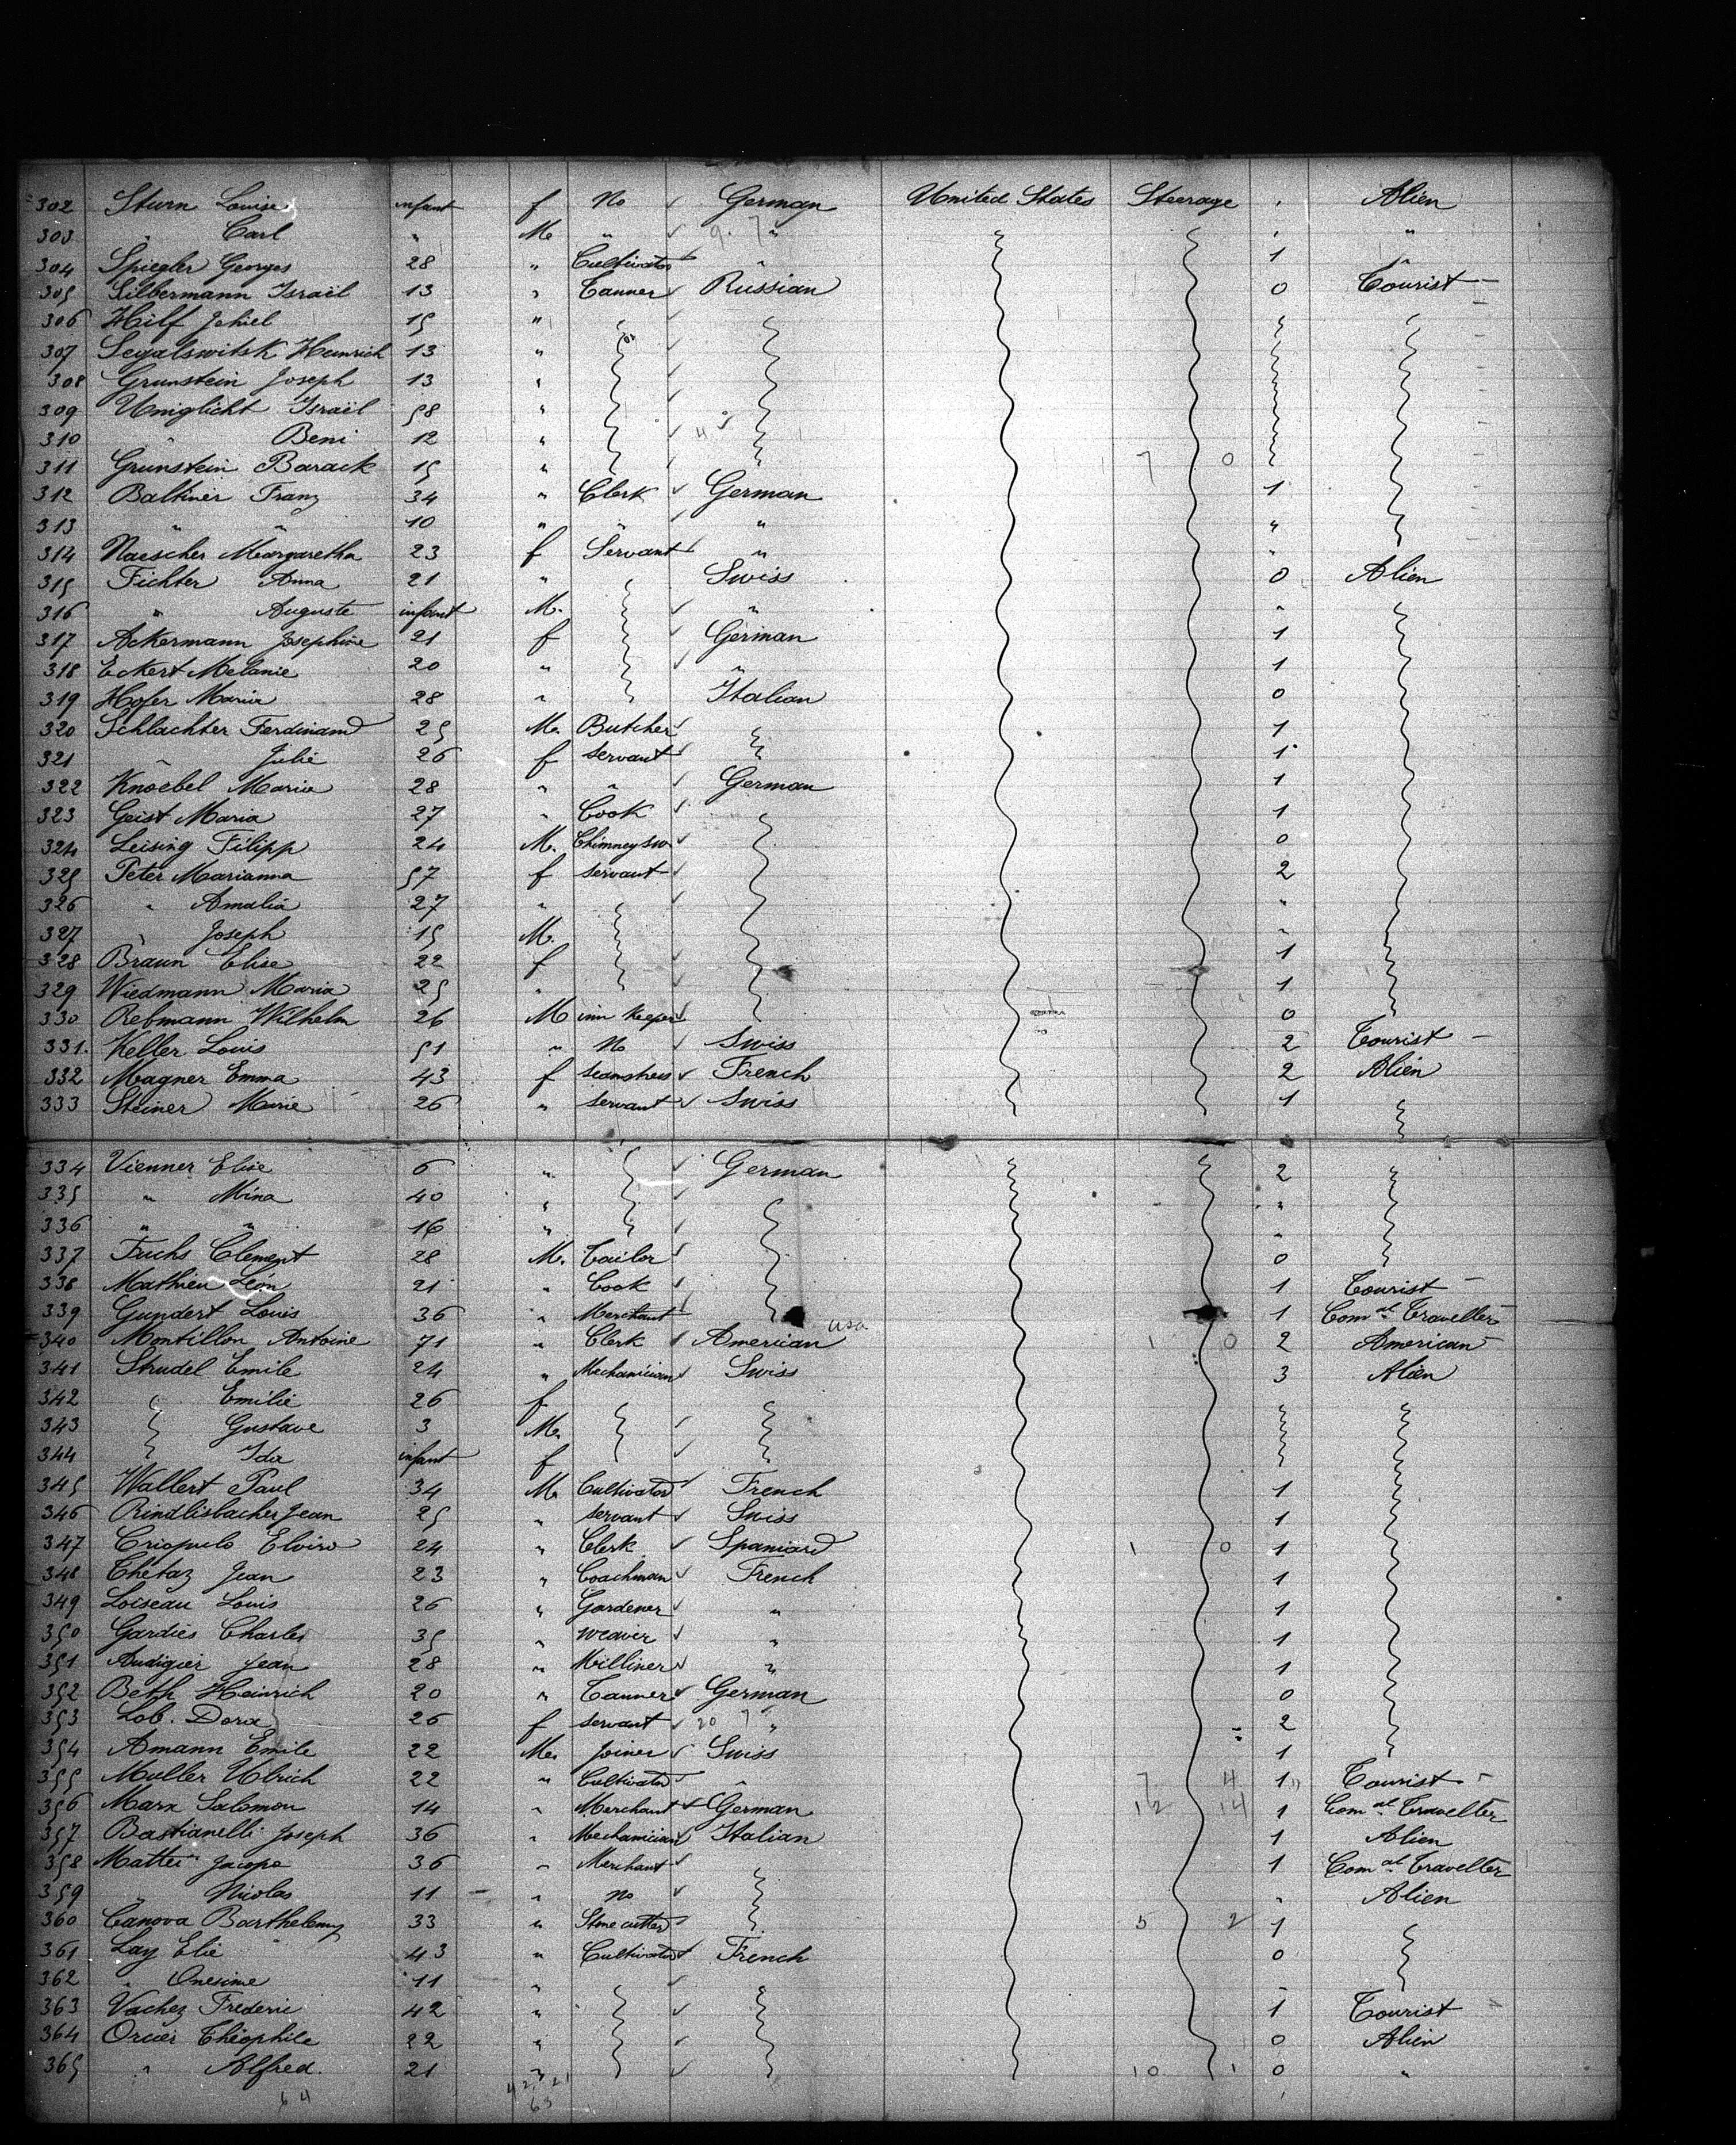 302 Sturn Louise infant f No ✓ German United States Steerage " Alien
303 " Carl " M. " ✓ " " "
304 Spiegler Georges 28 " Cultivator " 1 "
305 Silbermann Israël 13 " Tanner ✓ Russian 0 Tourist
306 Hilf Jehiel 15 " ✓
307 Segalswitsk Heinrich 13 " ✓
308 Grunstein Joseph 13 " ✓
309 Uniglicht Israël 58 " ✓
310 " Beni 12 " ✓
311 Grunstein Barack 15 " ✓ 7 0
312 Baltiner Franz 34 " Clerk ✓ German 1
313 " " 10 " " ✓ " "
314 Naescher Margaretha 23 f Servant ✓ " "
315 Fichter Anna 21 " Swiss 0 Alien
316 " Auguste infant M. ✓ " "
317 Ackermann Josephine 21 f ✓ German 1
318 Eckert Melanie 20 " ✓ " 1
319 Hofer Maria 28 " Italian 0
320 Schlachter Ferdinand 25 M. Butcher ✓ 1
321 " Julie 26 f servant ✓ 1
322 Knoebel Maria 28 " " ✓ German 1
323 Geist Maria 27 " Cook ✓ 1
324 Leising Filipp 24 M. Chimney sw. ✓ 0
325 Peter Marianna 57 f servant 2
326 " Amalia 27 " ✓ "
327 " Joseph 15 M. "
328 Braun Elise 22 f ✓ 1
329 Wiedmann Maria 25 " ✓ 1
330 Rebmann Wilhelm 26 M inn Keeper ✓ 0
331. Keller Louis 51 " No ✓ Swiss 2 Tourist
332 Magner Emma 43 f seamstress ✓ French 2 Alien
333 Steiner Marie 26 " servant ✓ Swiss 1
334 Vienner Elise 6 " ✓ German 2
335 " Mina 40 " ✓ "
336 " " 16 " ✓ "
337 Fuchs Clement 28 M. Tailor ✓ 0
338 Mathieu Léon 21 " Cook ✓ 1 Tourist
339 Gundert Louis 36 " Merchant 1 Com al. Traveller
340 Montillon Antoine 71 " Clerk ✓ American USA 1 0 2 American
341 Strudel Emile 24 " Mechanician ✓ Swiss 3 Alien
342 Emilie 26 f
343 Gustave 3 M. ✓
344 Ida infant f ✓
345 Wallert Paul 34 M. Cultivator ✓ French 1
346 Rindlisbacher Jean 25 " servant ✓ Swiss 1
347 Criopulo Elviro 24 " Clerk ✓ Spaniard 1 0 1
348 Chetaz Jean 23 " Coachman ✓ French 1
349 Loiseau Louis 26 " Gardener ✓ " 1
350 Gardies Charles 35 " weaver ✓ " 1
351 Audigier Jean 28 " Milliner ✓ " 1
352 Beth Heinrich 20 " Tanner ✓ German 0
353 Lob. Dora 26 f servant ✓ 20 7 " 2
354 Amann Emile 22 M. Joiner ✓ Swiss 1
355 Muller Ulrich 22 " Cultivator " 7 4 1 Tourist
356 Marx Salomon 14 " Merchant ✓ German 12 14 1 Com al. Traveller
357 Bastianelli Joseph 36 " Mechanician ✓ Italian 1 Alien
358 Mattei Jacopo 36 " Merchant ✓ 1 Com al. Traveller
359 " Nicolas 11 " no ✓ " Alien
360 Canova Barthelemy 33 " Stone cutter 5 2 1
361 Lay Elie 43 " Cultivator ✓ French 0
362 " Onesime 11 " ✓ "
363 Vachez Frederic 42 " ✓ 1 Tourist
364 Orcier Théophile 22 " ✓ 0 Alien
365 " Alfred. 21 " ✓ 10 1 0 "
64 42 21
63